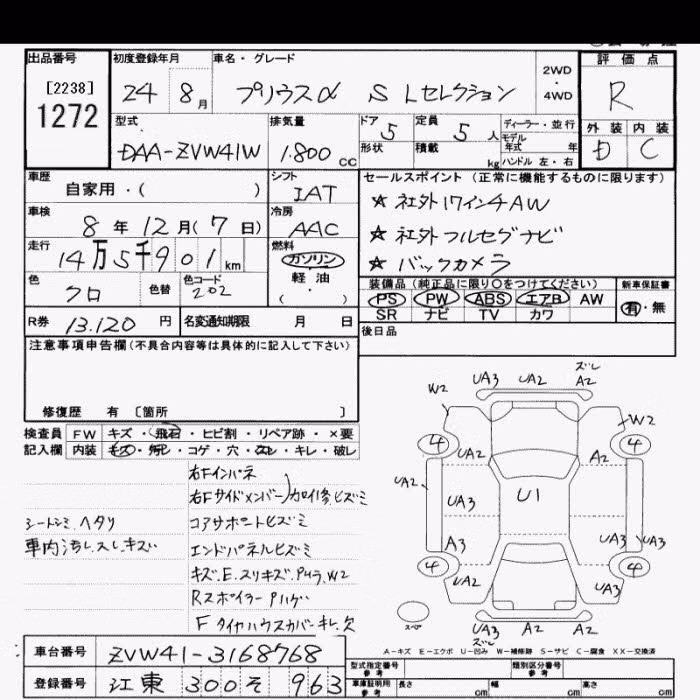 出品番号
[2238]
1272
初度登録年月
24 8月
車名・グレード
プリウスα S Lセレクション
2WD
・
4WD
評価点
R
外装 内装
D C
型式
DAA-ZVW41W
排気量
1.800 CC
ドア 5
形状
定員 5 人
積載 kg
ディーラー・並行
モデル
年式 年
ハンドル 左・右
車歴
自家用・( )
シフト
IAT
車検
8 年 12 月 ( 7 日)
冷房
AAC
走行
14万5千901 km
燃料
ガソリン
軽油
・
( )
色
クロ
色替
色コード
202
R券 13.120 円
名変通知期限 月 日
セールスポイント (正常に機能するものに限ります)
★ 社外17インチAW
★ 社外フルセグナビ
★ バックカメラ
装備品 (純正品に限り○をつけてください)
PS PW ABS エアB AW
SR ナビ TV カワ
新車保証書
有・無
後日品
注意事項申告欄 (不具合内容等は具体的に記入して下さい)
修復歴 有 〔箇所 〕
検査員 FW キズ・飛石・ヒビ割・リペア跡・×要
記入欄 内装 キズ・汚レ・コゲ・穴・スレ・キレ・破レ
右Fインパネ
右Fサイドメンバー)加修ヒズミ
シートシミ.ヘタリ
コアサポートヒズミ
車内汚レ.スレ.キズ
エンドパネルヒズミ
キズ.E.スリキズ.Pムラ.W2
RスポイラーPハゲ
Fタイヤハウスカバーキレ.欠
W2 UA3 UA2 ズレ A2
W2
4 4
UA2 A2
UA2
UA3 U1
A3 UA3 UA3
4 4
UA2 UA3
スペア
UA3 ズレ A2 A2
A-キズ E-エクボ U-凹み W-補修跡 S-サビ C-腐食 XX-交換済
車台番号 ZVW41-3168768
登録番号 江東 300 そ 963
型式指定番号
参考
類別区分番号
参考
車庫証明用
参考
長さ cm 幅 cm 高さ cm